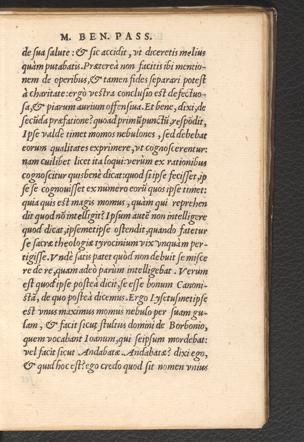 M. BEN. PASS.
de sua salute: & sic accidit, vt diceretis melius
quàm putabatis. Præterea non facitis ibi mentio-
nem de operibus, & tamen fides separari potest
à charitate: ergò vestra conclusio est defectuo-
sa, & piarum aurium offensiua. Et bene, dixi, de
secũda præfatione? quoad primũ punctũ, respõdit,
Ipse valdè timet momos nebulones, sed debebat
eorum qualitates exprimere, vt cognoscerentur:
nam cuilibet licet ita loqui: verùm ex rationibus
cognoscitur quis benè dicat: quod si ipse fecisset, ip
se se cognouisset ex numero eorũ quos ipse timet:
quia quis est magis momus, quàm qui reprehen
dit quod nõ intelligit? Ipsum autẽ non intelligere
quod dicat, ipsemet ipse ostendit, quando fatetur
se sacræ theologiæ tyrocinium vix vnquàm per-
tigisse. Vndè satis patet quòd non debuit se misce
re de re, quam adeò parùm intelligebat. Verùm
est quod ipse posteà dicit, se esse bonum Canoni-
stã, de quo posteà dicemus. Ergo Lysetus met ipse
est vnus maximus momus nebulo per suam gu-
lam, & facit sicut stultus domini de Borbonio,
quem vocabant Ioanum, qui seipsum mordebat:
vel facit sicut Andabatæ. Andabatæ? dixi ego,
& quid hoc est? ego credo quod sit nomen vnius